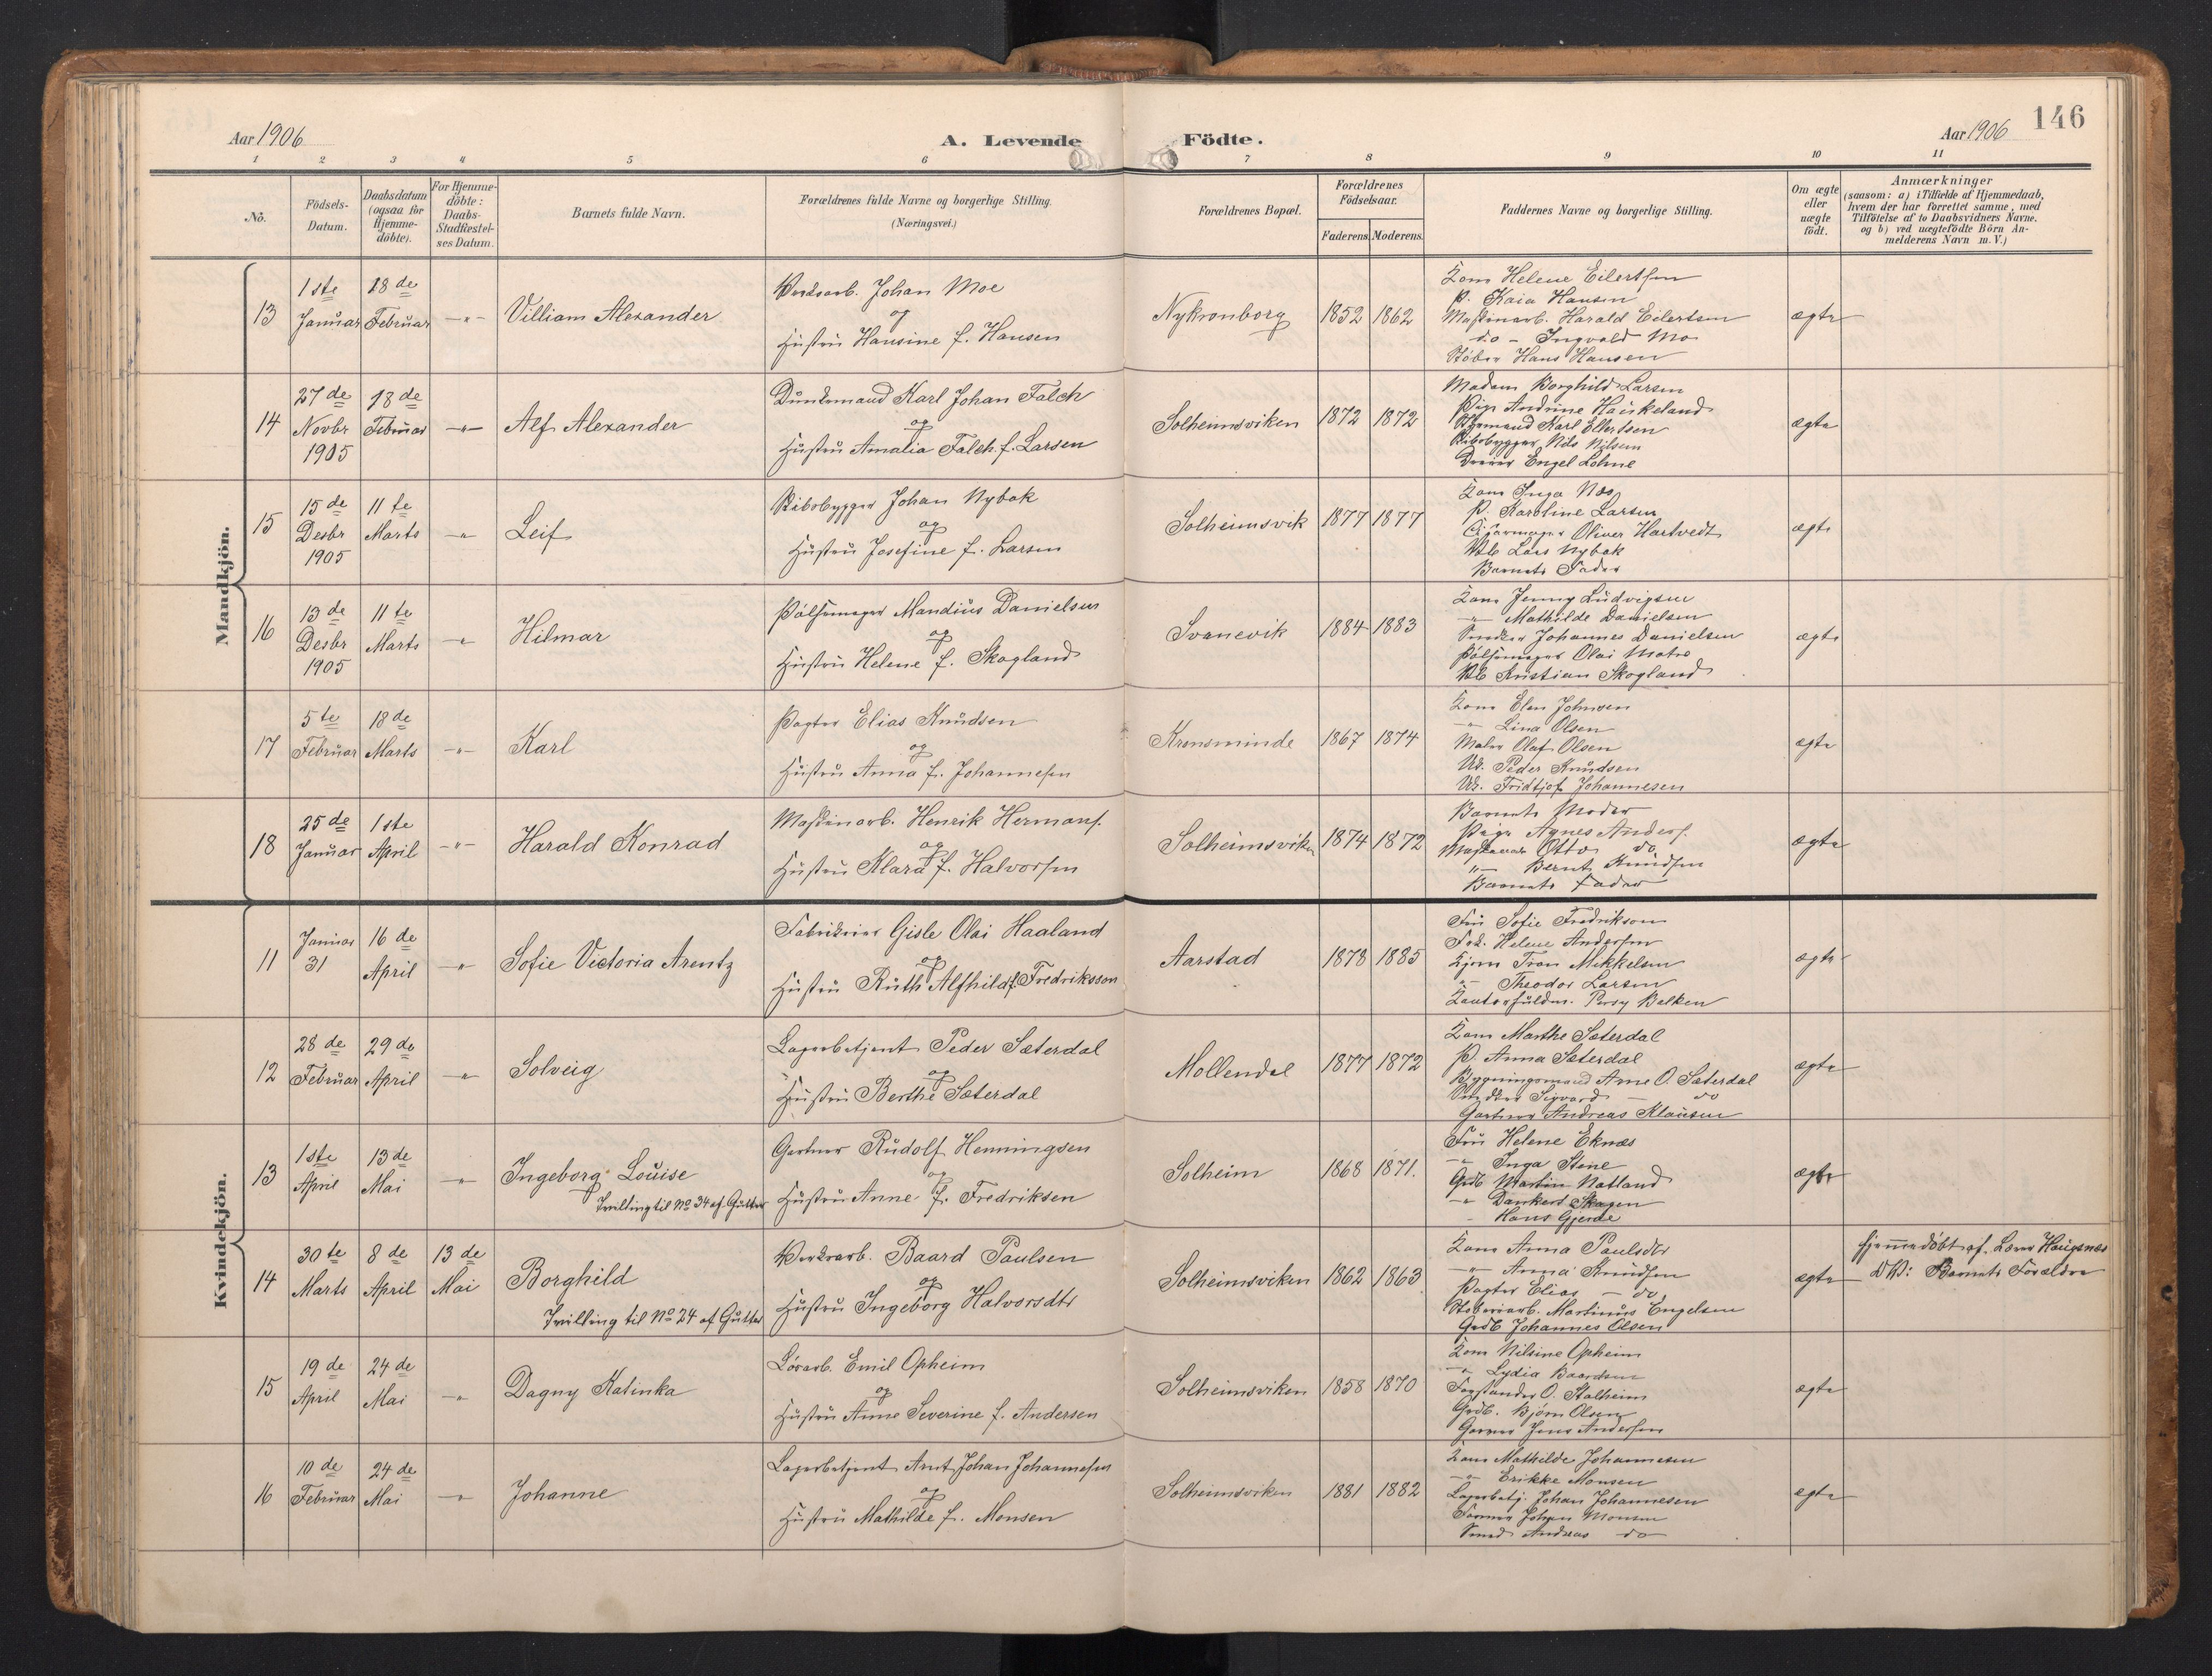 146
Aar 1906
A. Levende
Födte.
Aar 1906
1 2 3 4 5 6 7 8 9 10 11
No.
Födsels-
Datum.
Daabsdatum
(ogsaa for
Hjemme-
döbte).
For Hjemme-
döbte:
Daabs-
Stadfæstel-
ses Datum.
Barnets fulde Navn.
Forældrenes fulde Navne og borgerlige Stilling.
(Næringsvei.)
Forældrenes Bopæl.
Forældrenes
Födselsaar.
Faderens.
Moderens.
Faddernes Navne og borgerlige Stilling.
Om ægte
eller
uægte
födt.
Anmærkninger
(saasom: a) i Tilfælde af Hjemmedaab,
hvem der har forrettet samme, med
Tilföielse af to Daabsvidners Navne.
og b) ved uægtefödte Börn An-
melderens Navn m. V.)
Mandkjön.
13
1ste
Januar
18de
Februar
-"-
Villiam Alexander
Johan Moe
og
Hustru Hansine f. Hansen
Nykronborg
1852
1862
Kone Helene Eilertsen
P. Kaia Hansen
Maskinarb. Harald Eilertsen
do - Ingvald Mo
Støber Hans Hansen
ægte
14
27de
Novbr
1905
18de
Februar
-"-
Alf Alexander
Karl Johan Falch
og
Hustru Amalia Falch f. Larsen
Solheimsviken
1872
1872
Madam Borghild Larsen
Pige Andrine Haukeland
Karl Ellertsen
Skibsbygger Nils Nilsen
Dreier Engel Lohne
ægte
15
15de
Desbr
1905
11te
Marts
-"-
Leif
Skibsbygger Johan Nybak
og
Hustru Josefine f. Larsen
Solheimsvik
1877
1877
Kone Inga Næs
P. Karoline Larsen
Oliver Hartvedt
Lars Nybak
Barnets Fader
ægte
16
13de
Desbr
1905
11te
Marts
-"-
Hilmar
Pølsemager Mandius Danielsen
og
Hustru Helene f. Skogland
Svanevik
1884
1883
Kone Jenny Ludvigsen
-"- Mathilde Danielsen
Snedker Johannes Danielsen
Pølsemager Olai Matre
Kristian Skogland
ægte
17
5te
Februar
18de
Marts
-"-
Karl
Pagter Elias Knudsen
og
Hustru Anna f. Johannesen
Kronsminde
1867
1874
Kone Elen Johnsen
-"- Lina Olsen
Maler Olaf Olsen
Uk. Peder Knudsen
Uk. Fridtjof Johannesen
ægte
18
25de
Januar
1ste
April
-"-
Harald Konrad
Maskinarb. Henrik Hermans.
og
Hustru Klara f. Halvorsen
Solheimsviken
1874
1872
Barnets Moder
Pige Agnes Anders.
Otto do
"- Bernt Knudsen
Barnets Fader
ægte
Kvindekjön.
11
Januar
31
16de
April
-"-
Sofie Victoria Arentz
Gisle Olai Haaland
og
Hustru Ruth Alfhild f. Fredriksson
Aarstad
1878
1885
Fru Sofie Fredrikson
Frk. Helene Andersen
Mikkelsen
"- Theodor Larsen
Kontorfuldm.
ægte
12
28de
Februar
29de
April
-"-
Solveig
Lagerbetjent Peder Sæterdal
og
Hustru Berthe Sæterdal
Møllendal
1877
1872
Kone Marthe Sæterdal
P. Anna Sæterdal
Bygningsmand Arne O. Sæterdal
Snedker Sigvard - do
Gartner Andreas Klausen
ægte
13
1ste
April
13de
Mai
-"-
Ingeborg Louise
Tvilling til No 34 af Gutter
Gartner Rudolf Henningsen
og
Hustru Anne f. Fredriksen
Solheim
1868
1871.
Fru Helene Eknæs
-"- Inga Stene
Grdb Martin Natland
-"- Dankert Skagen
- Hans Gjerde
ægte
14
30te
Marts
8de
April
13de
Mai
Borghild
Tvilling til No 24 af Gutter
Verksarb. Baard Paulsen
og
Hustru Ingeborg Halvorsdtr
Solheimsviken
1862
1863
Kone Anna Paulsdtr
-"- Anna Knudsen
Pagter Elias - do
Støberiarb. Martinus Engelsen
Grdb Johannes Olsen
ægte
Hjemmedøbt af Lærer Haugsnæs
DV: Barnets Forældre
15
19de
April
24de
Mai
-"-
Dagny Katinka
Løsarb. Emil Opheim
og
Hustru Anne Severine f. Andersen
Solheimsviken
1858
1870
Kone Nilsine Opheim
-"- Lydia Baardsen
Forstander O. Stalheim
Grdb. Bjørn Olsen
Garver Jens Andersen
ægte
16
10de
Februar
24de
Mai
-"-
Johanne
Lagerbetjent Arnt Johan Johannesen
og
Hustru Mathilde f. Monsen
Solheimsviken
1881
1882
Kone Mathilde Johannesen
-"- Erikke Monsen
Lagerbetj. Johan Johannesen
Former Johan Monsen
Smed Andreas do
ægte